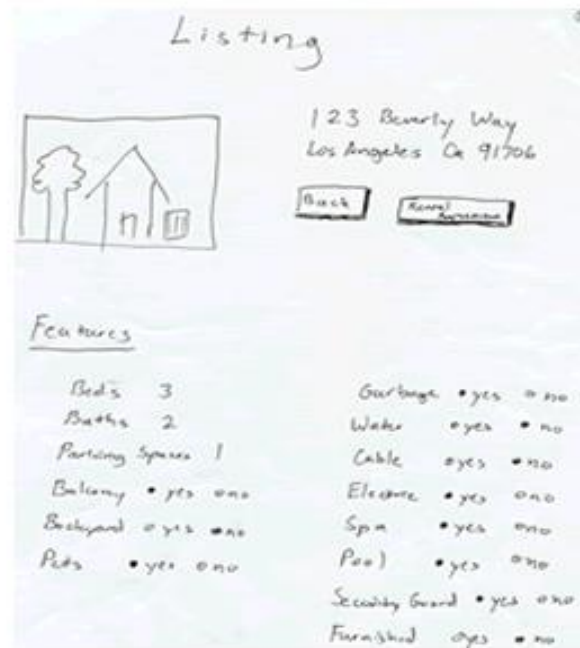 Listing
123 Beverly Way
Los Angeles Ca 91706
Back
Rental
Features
Beds 3
Baths 2
Parking Spaces 1
Balcony • yes o no
Backyard o yes • no
Pets • yes o no
Garbage • yes o no
Water o yes • no
Cable o yes • no
Electric • yes o no
Spa • yes o no
Pool • yes o no
Security Guard • yes o no
Furnished o yes • no